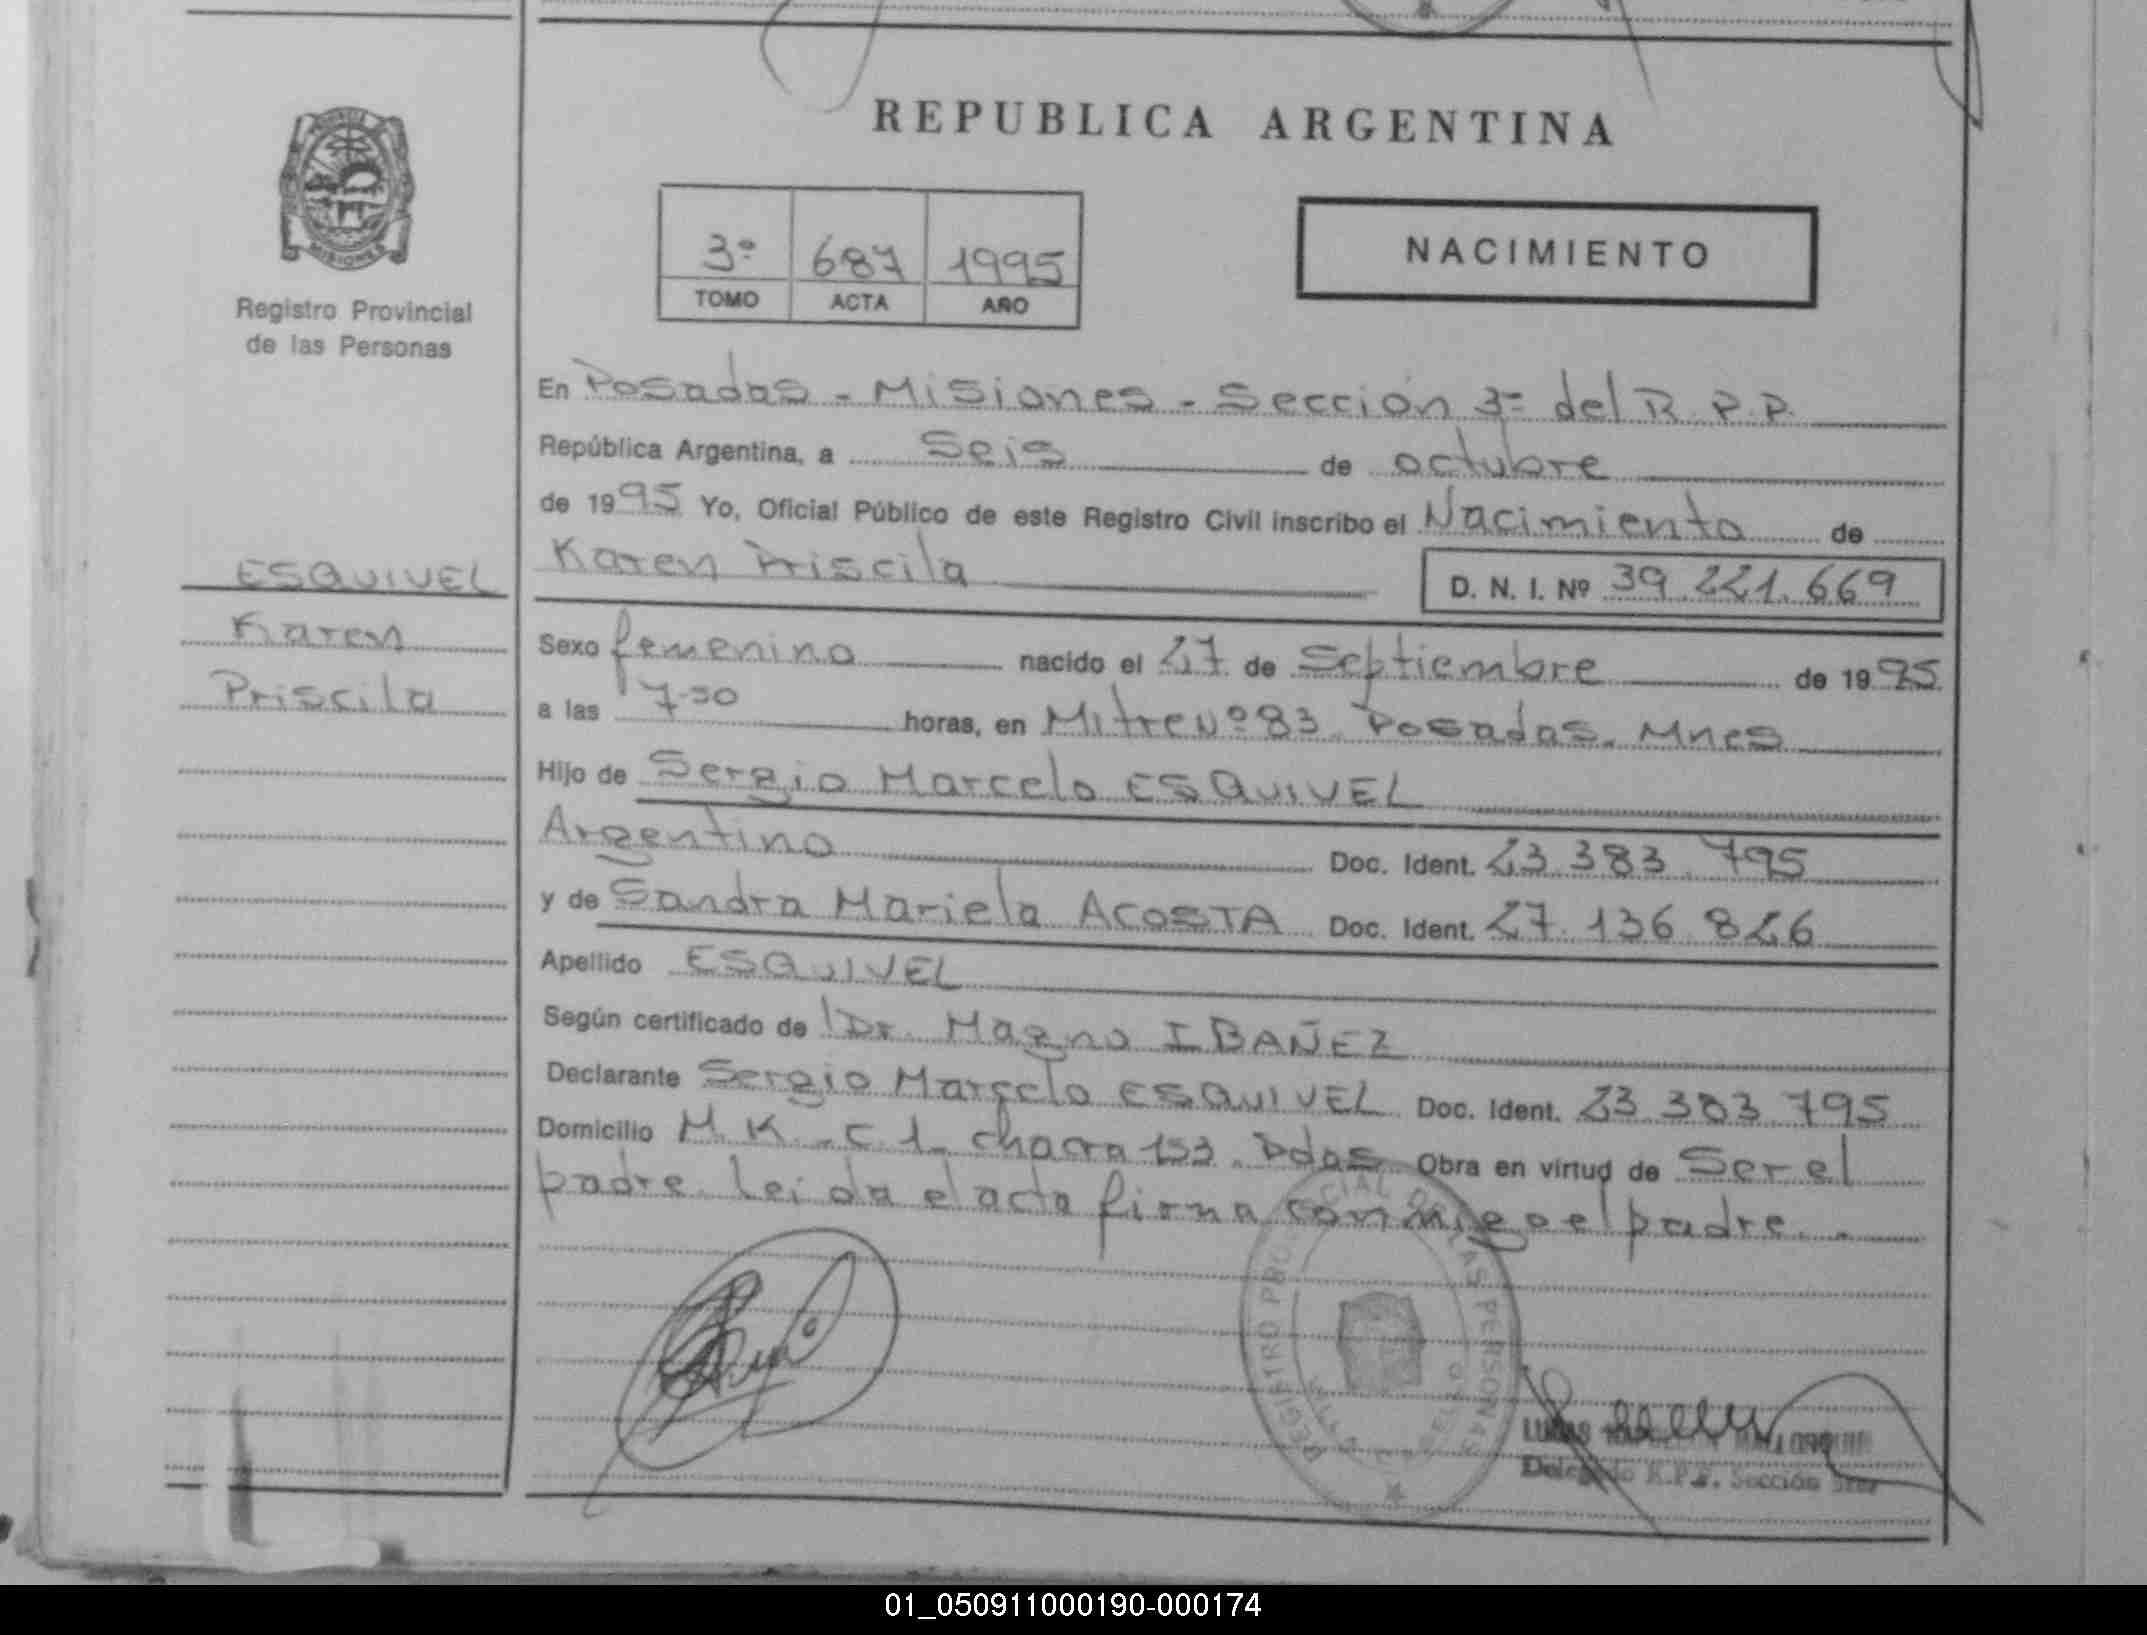 REPUBLICA ARGENTINA
PROVINCIA DE
MISIONES
Registro Provincial
de las Personas
3º 687 1995
TOMO ACTA AÑO
NACIMIENTO
En Posadas - Misiones - Sección 3ª del R.P.P.
República Argentina, a Seis de octubre
de 1995 Yo, Oficial Público de este Registro Civil inscribo el Nacimiento de
Karen Priscila D. N. I. Nº 39.221.669
ESQUIVEL
Karen
Priscila
Sexo femenino nacido el 27 de Septiembre de 1995
a las 7-30 horas, en Mitre Nº 83. Posadas. Mnes
Hijo de Sergio Marcelo ESQUIVEL
Argentino Doc. Ident. 23.383.795
y de Sandra Mariela ACOSTA Doc. Ident. 27.136.826
Apellido ESQUIVEL
Según certificado de Dr. Magno IBAÑEZ
Declarante Sergio Marcelo ESQUIVEL Doc. Ident. 23.383.795
Domicilio M.K.-C.1 chacra 153. Pdas Obra en virtud de Ser el
padre. Leida el acta firma conmigo el padre.-
REGISTRO PROVINCIAL DE LAS PERSONAS
LUCAS
Delegado R.P.P. Sección 3era
01_050911000190-000174